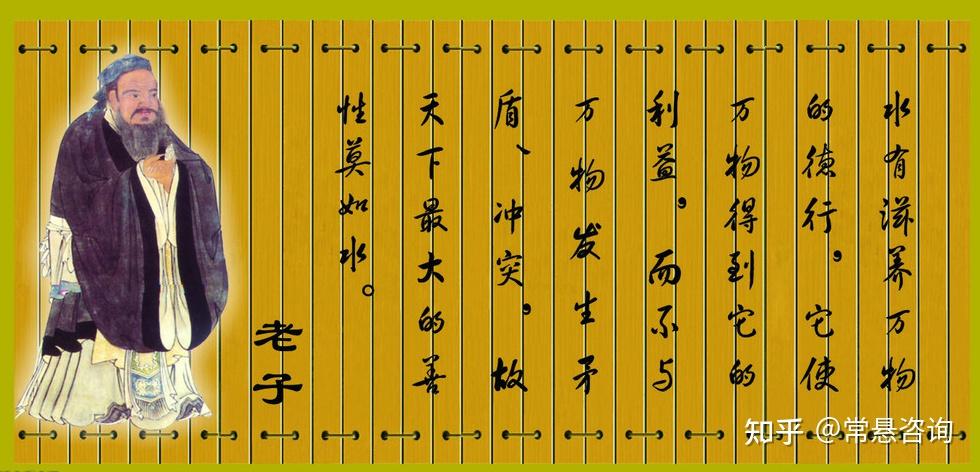 水有滋养万物
的德行，它使
万物得到它的
利益，而不与
万物发生矛
盾、冲突，故
天下最大的善
性莫如水。
老子
知乎 @常悬咨询